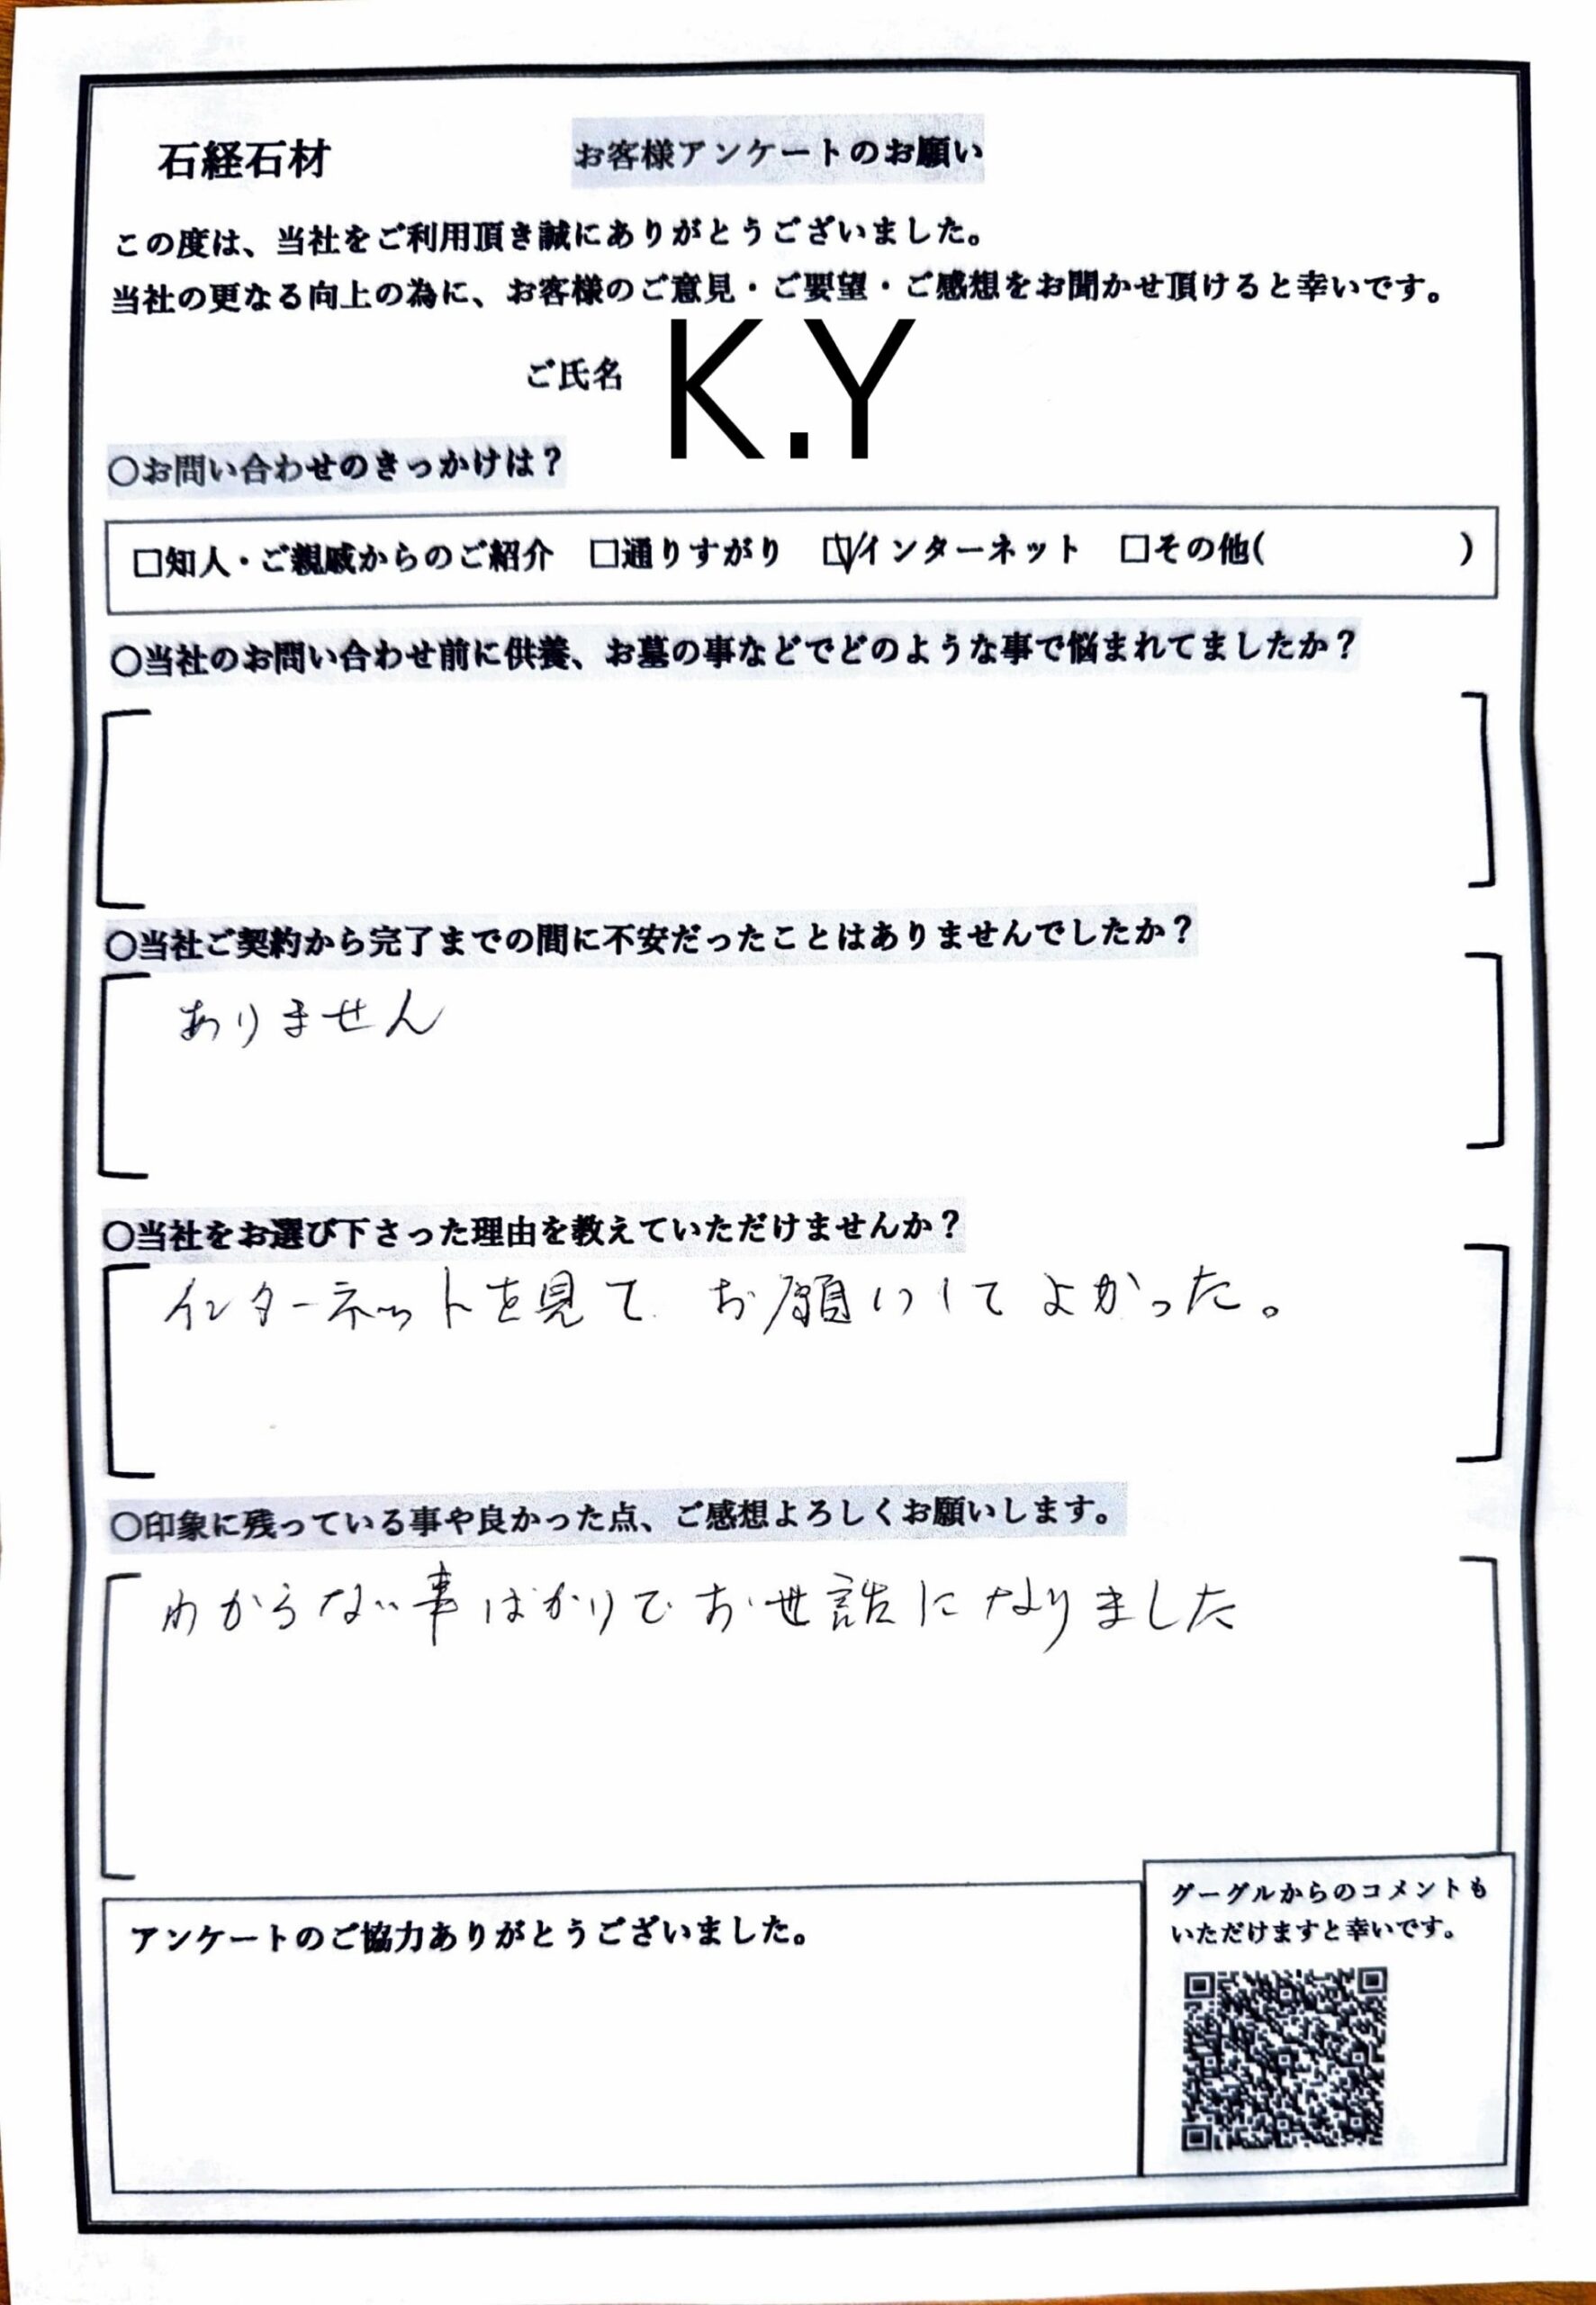 石経石材　お客様アンケートのお願い
この度は、当社をご利用頂き誠にありがとうございました。
当社の更なる向上の為に、お客様のご意見・ご要望・ご感想をお聞かせ頂けると幸いです。
ご氏名　K.Y
〇お問い合わせのきっかけは？
□知人・ご親戚からのご紹介　□通りすがり　☑インターネット　□その他(　　　)
〇当社のお問い合わせ前に供養、お墓の事などでどのような事で悩まれてましたか？
〇当社ご契約から完了までの間に不安だったことはありませんでしたか？
ありません
〇当社をお選び下さった理由を教えていただけませんか？
インターネットを見て お願いしてよかった。
〇印象に残っている事や良かった点、ご感想よろしくお願いします。
わからない事ばかりでお世話になりました
アンケートのご協力ありがとうございました。
グーグルからのコメントも
いただけますと幸いです。